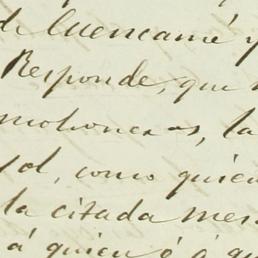 de Cuencamé y
Responde, que
mohoneras, la
sol, como quien
la citada mer
á quien ó á qu